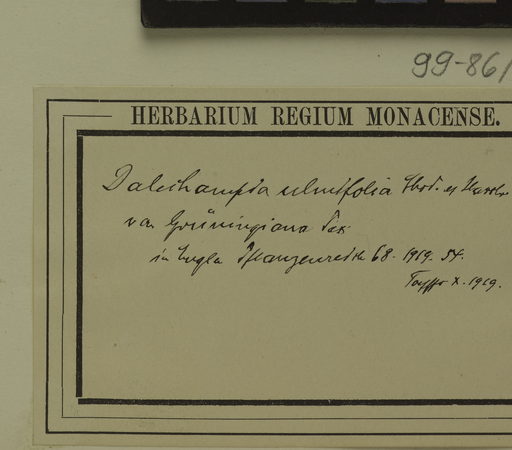 99-86/
HERBARIUM REGIUM MONACENSE.
Dalechampia ulmifolia Chod. et Hassler
var Grüningiana Pax
in Engler Pflanzenreich 68. 1919. 54.
X. 1919.